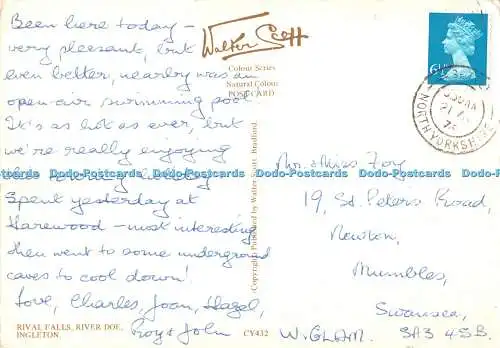 Been here today —
very pleasant, but
even better, nearby was an
open-air swimming pool.
It's as hot as ever, but
we're really enjoying
Spent yesterday at
Harewood – most interesting
then went to some underground
caves to cool down!
Love, Charles, Joan, Hazel,
Roy & John
RIVAL FALLS, RIVER DOE,
INGLETON
CY432
Walter Scott
Colour Series
Natural Colour
POSTCARD
Copyright Published by Walter Scott Bradford.
6½P
NORTH YORKSHIRE
Mr. & Miss
19, St. Peter's Road,
Newton,
Mumbles,
Swansea,
W. GLAM. SA3 4SB.
Dodo-Postcards Dodo-Postcards Dodo-Postcards Dodo-Postcards Dodo-Postcards Dodo-Postcards